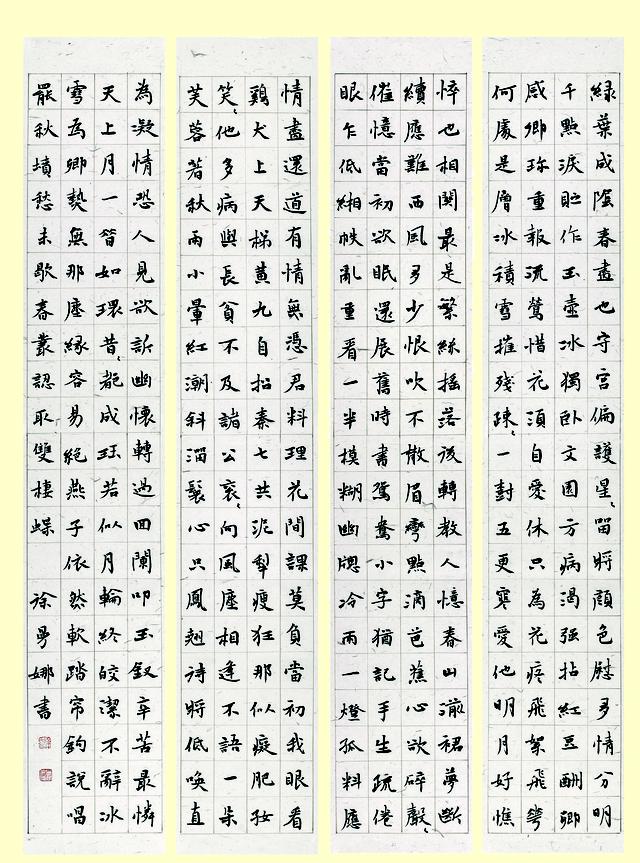 綠葉成陰春盡也守宮偏護星々留將顏色慰多情分明
千點淚貯作玉壺冰獨臥文園方病渴強拈紅豆酬卿
感卿珍重報流鶯惜花須自愛休只為花疼飛絮飛華
何處是層冰積雪摧殘疎々一封五更寒愛他明月好憔
悴也相關最是繁絲搖落後轉教人憶春山湔裙夢斷
續應難西風多少恨吹不散眉彎點滴芭蕉心欲碎聲々
催憶當初欲眠還展舊時書鴛鴦小字猶記手生疏倦
眼乍低緗帙亂重看一半模糊幽牕冷雨一燈孤料應
情盡還道有情無憑君料理花間課莫負當初我眼看
鷄犬上天梯黃九自招秦七共泥犁瘦狂那似癡肥好
笑々他多病與長貧不及諸公袞々向風塵相逢不語一朵
芙蓉著秋雨小暈紅潮斜溜鬟心只鳳翹待將低喚直
為凝情恐人見欲訴幽懷轉過回闌叩玉釵辛苦最憐
天上月一昔如環昔々都成玦若似月輪終皎潔不辭冰
雪為卿熱無那塵緣容易絕燕子依然軟踏帘鉤說唱
罷秋墳愁未歇春叢認取雙棲蝶 徐娜書